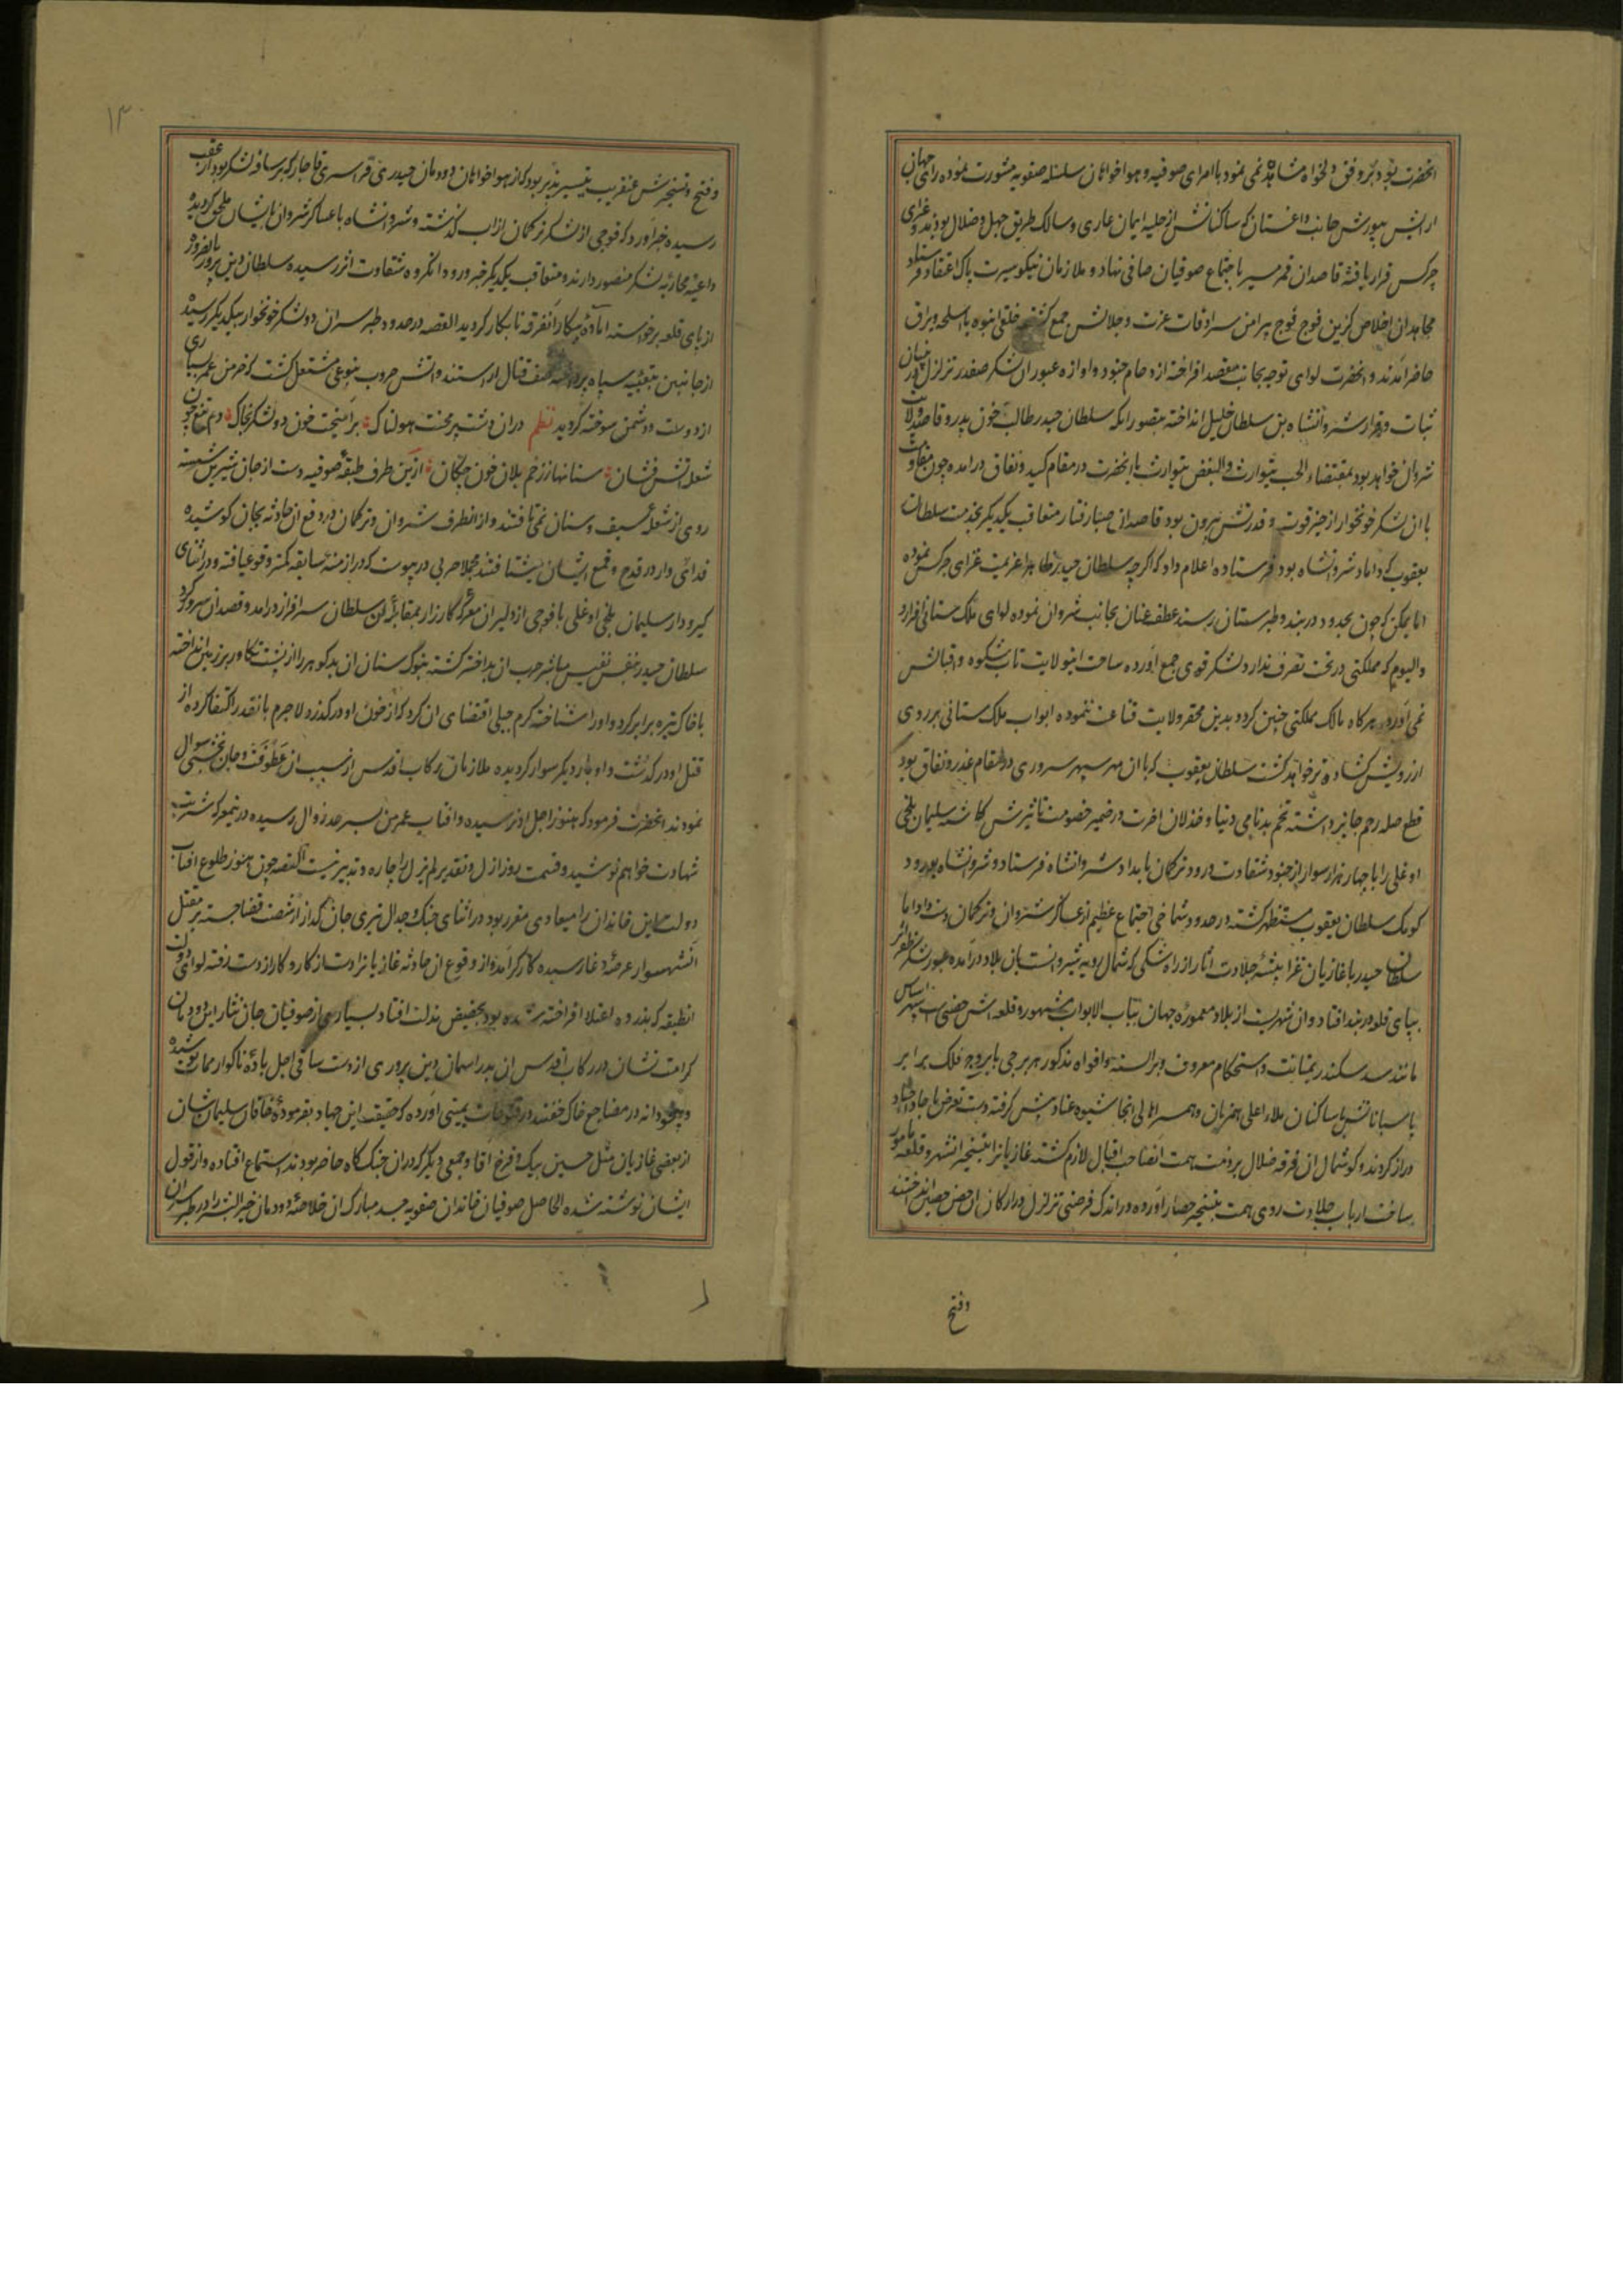 انحضرت بود بر وفق دلخواه مشاهده نمی نمود با امرای صوفیه و هواخواهان سلسله صفویه مشورت نموده رای جهان
ارایش بیورش جانب داغستان که ساکنانش از حلیه ایمان عاری و سالک طریق جهل و ضلال بودند و غزای
چرکس قرار یافته قاصدان قمر مسیر باجتماع صوفیان صافی نهاد و ملازمان نیکو سیرت پاک اعتقاد
مجاهدان اخلاص گزین فوج فوج پیرامن سرادقات عزت و جلالش جمع گشته خلقی انبوه با اسلحه و یراق
حاضر آمدند و انحضرت لوای توجه بجانب مقصد افراخته ازدحام جنود و اوازه عبور ان لشکر صفدر تزلزل در بنیان
ثبات و قرار شروانشاه بن سلطان خلیل انداخته بتصور انکه سلطان حیدر طالب خون پدر و قاصد ولایت
شروان خواهد بود بمقتضاء الحب یتوارث و البغض یتوارث با انحضرت در مقام کید و نفاق درامده چون مقاومت
با ان لشکر خونخوار از حیز قوت و قدرتش بیرون بود قاصدان صبا رفتار متعاقب یکدیگر بخدمت سلطان
یعقوب که داماد شروانشاه بود فرستاده اعلام داد که اگرچه سلطان حیدر ظاهرا عزیمت غزای چرکس نموده
اما یمکن که چون بحدود دربند و طبرستان رسند عطف عنان بجانب شروان نموده لوای ملک ستانی افرازد
و الیوم که مملکتی در تحت تصرف ندارد لشکر قوی جمع آورده ساحت اینولایت تاب شکوه و اقبالش
نمی آورد هرگاه مالک مملکتی چنین گردد بدین محقر ولایت قناعت ننموده ابواب ملک ستانی بر روی
ارزویش گشاده تر خواهد گشت سلطان یعقوب که با ان مهر سپهر سروری در مقام غدر و نفاق بود
قطع صله رحم جایز داشته تخم بدنامی دنیا و خذلان اخرت در ضمیر خصومت تاثیرش کاشته سلیمان بیجن
اوغلی را با چهار هزار سوار از جنود شقاوت ورود ترکمان بامداد شروانشاه فرستاد و شروانشاه بورود
کومک سلطان یعقوب مستظهر گشته در حدود شماخی اجتماع عظیم از عساکر شروان و ترکمان دست داد اما
سلطان حیدر با غازیان غزا پیشه جلادت اثار از راه شکی که شمال رویه شیروانست بان بلاد درآمده عبور لشکر ظفر اثر
بپای قلعه دربند افتاد و ان شهریست از بلاد معموره جهان بباب الابواب مشهور و قلعه اش حصنی است سپهر اساس
مانند سد سکندر بمتانت و استحکام معروف و بر السنه و افواه مذکور هر برجی با بروج فلک برابر
پاسبانانش با ساکنان ملاء اعلی همزبان و همسر اهالی انجا شیوه عناد پیش گرفته دست تعرض
دراز کردند و گوشمال ان فرقه ضلال بر ذمت همت انصاحب اقبال لازم گشته غازیانرا بتسخیر انشهر و قلعه مامور
ساخت ارباب جلادت روی همت بتسخیر حصار آورده در اندک فرصتی تزلزل در ارکان ان حصن حصین انداختند
وفتح
۱۳
وفتح و تسخیرش عنقریب تیسیر پذیر بود که از هواخواهان دودمان حیدری قرا سری قاجار که بر ساقه لشکر بود از عقب
رسیده خبر آورد که فوجی از لشکر ترکمان از اب گذشته و شروانشاه با عساکر شروان بایشان ملحق گردیده
داعیه محاربه لشکر منصور دارند و متعاقب یکدیگر خبر ورود انگروه شقاوت اثر رسیده سلطان دین پرور بالضروره
از پای قلعه برخواسته اماده پیکار انفرقه نابکار گردید القصه در حدود طبرسران دو لشکر خونخوار بیکدیگر رسیده
از جانبین بتعبیه سپاه پرداخته صف قتال اراستند و اتش حروب بنوعی مشتعل گشت که خرمن عمر بسیاری
از دوست و دشمن سوخته گردید نظم دران دشت پر محنت هولناک برآمیخت خون دو لشکر بخاک دم تیغ چون
شعله اتش فشان سنانها ز زخم یلان خون چکان ازین طرف طبقه صوفیه دست از جان شیرین شسته
روی از شعله سیف و سنان نمی تافتند و از انطرف شروان و ترکمان در دفع ان حادثه بجان کوشیده
فدائی وار در قدح و قمع ایشان میشتافتند مجملا حربی در پیوست که در ازمنه سابقه کمتر وقوع یافته و در اثنای
گیر و دار سلیمان بیجن اوغلی با فوجی از دلیران معرکه کارزار بمقابل ان سلطان سرافراز درآمد و قصد ان سرور کرد
سلطان حیدر بنفس نفیس مباشر حرب ان بداختر گشته بنوک سنان ان بدگوهر را از پشت تکاور بر زمین انداخته
با خاک تیره برابر کرد و او را شناخته کرم جبلی اقتضای ان کرد که از خون او درگذرد لاجرم بانقدر اکتفا کرده از
قتل او درگذشت و او بار دیگر سوار گردیده ملازمان رکاب اقدس از سبب ان عطوفت و جان بخشی سوال
نمودند انحضرت فرمود که هنوز اجل او نرسیده و افتاب عمر من بسرحد زوال رسیده درینمعرکه شربت
شهادت خواهم نوشید و قسمت روز ازل و تقدیر لم یزل را چاره و تدبیر نیست القصه چون هنوز طلوع افتاب
دولت این خاندان را میعادی مقرر بود در اثنای جنک و جدال تیری جان گداز از شصت قضا جسته بر مقتل
آنشهسوار عرصه وغا رسیده کارگر آمد و از وقوع ان حادثه غازیانرا دست از کار و کار از دست رفته لوای دولت
انطبقه که بذروه اعتلا افراخته شده بود بحضیض مذلت افتاد بسیاری از صوفیان جان نثار این دودمان
کرامت نشان در رکاب اقدس ان بدر اسمان دین پروری از دست ساقی اجل باده ناگوار ممات نوشیده
در مضاجع خاک خفتند در فتوحات یمینی آورده که حقیقت این جهاد بفرموده خاقان سلیمان شان
از بعضی غازیان مثل حسین بیک و فرخ اقا و جمعی دیگر که دران جنک گاه حاضر بودند استماع افتاده و از قول
ایشان نوشته شده الحاصل صوفیان خاندان صفویه جسد مبارک ان خلاصه دودمان خیر البشر را در طبرسران